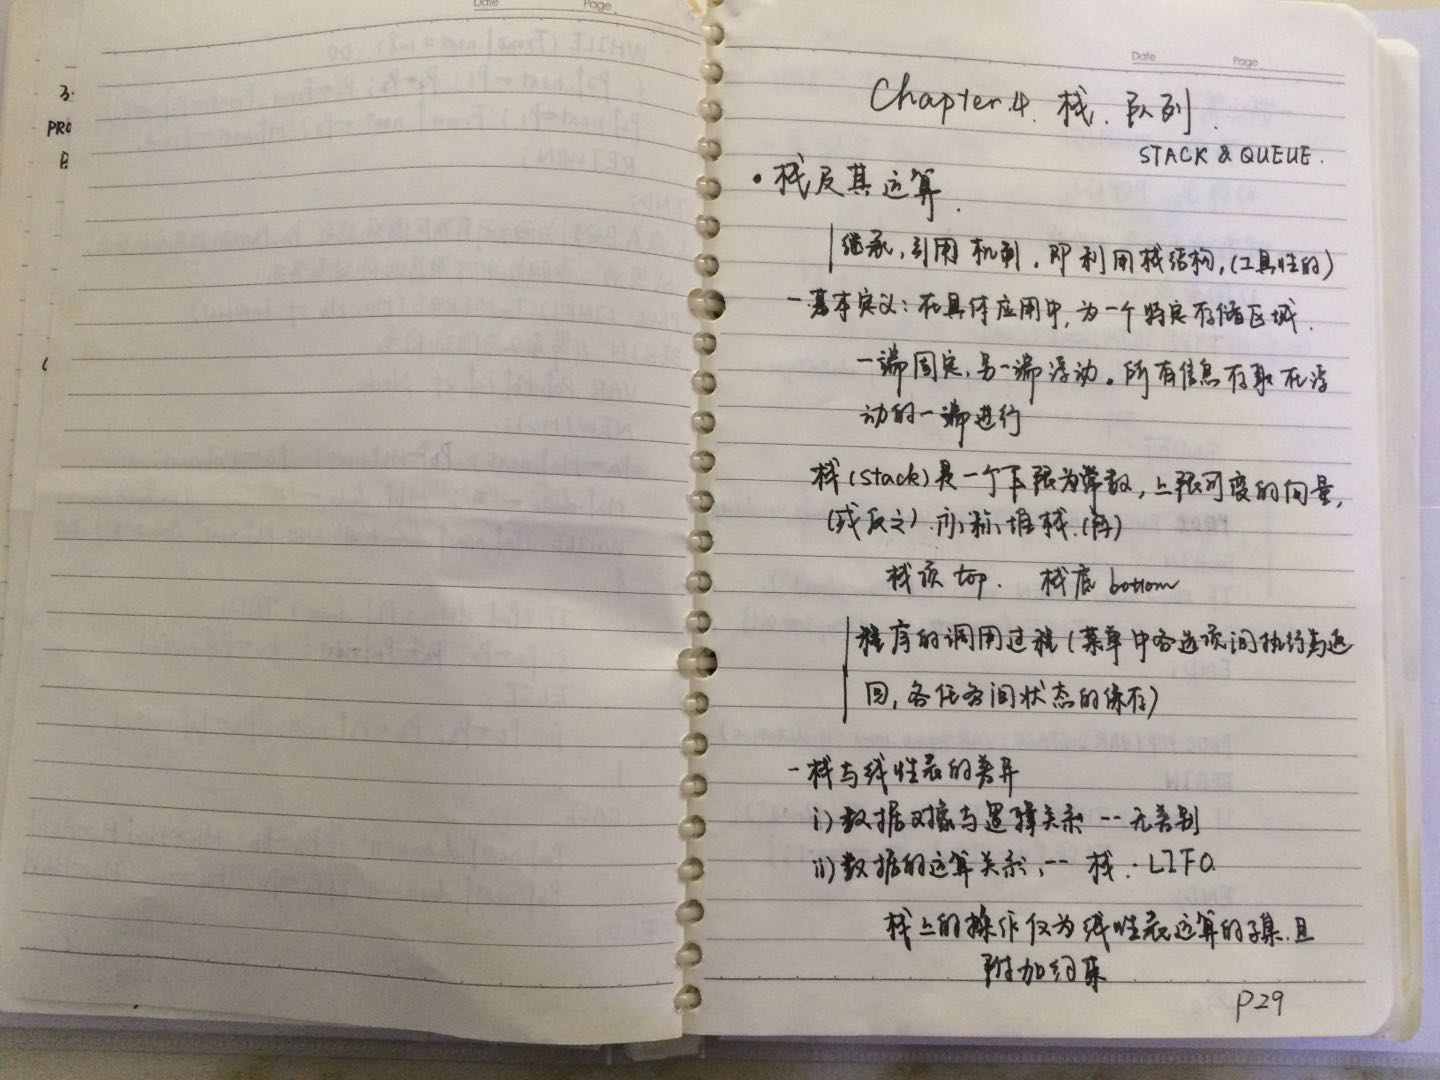 Date Page
PRO
Date Page
Chapter.4. 栈、队列.
STACK & QUEUE.
• 栈及其运算.
继承,引用机制,即利用栈结构,(工具性的)
-基本定义:在具体应用中,为一个特定存储区域.
一端固定,另一端浮动。所有信息存取在浮
动的一端进行
栈(stack)是一个下限为常数,上限可变的向量,
(或反之).亦称堆栈.
栈顶 top. 栈底 bottom
程序的调用过程(菜单中各选项间执行与返
回,各任务间状态的保存)
-栈与线性表的差异
i)数据对象与逻辑关系 -- 无差别
ii)数据的运算关系, -- 栈:LIFO
栈上的操作仅为线性表运算的子集.且
附加约束
P29